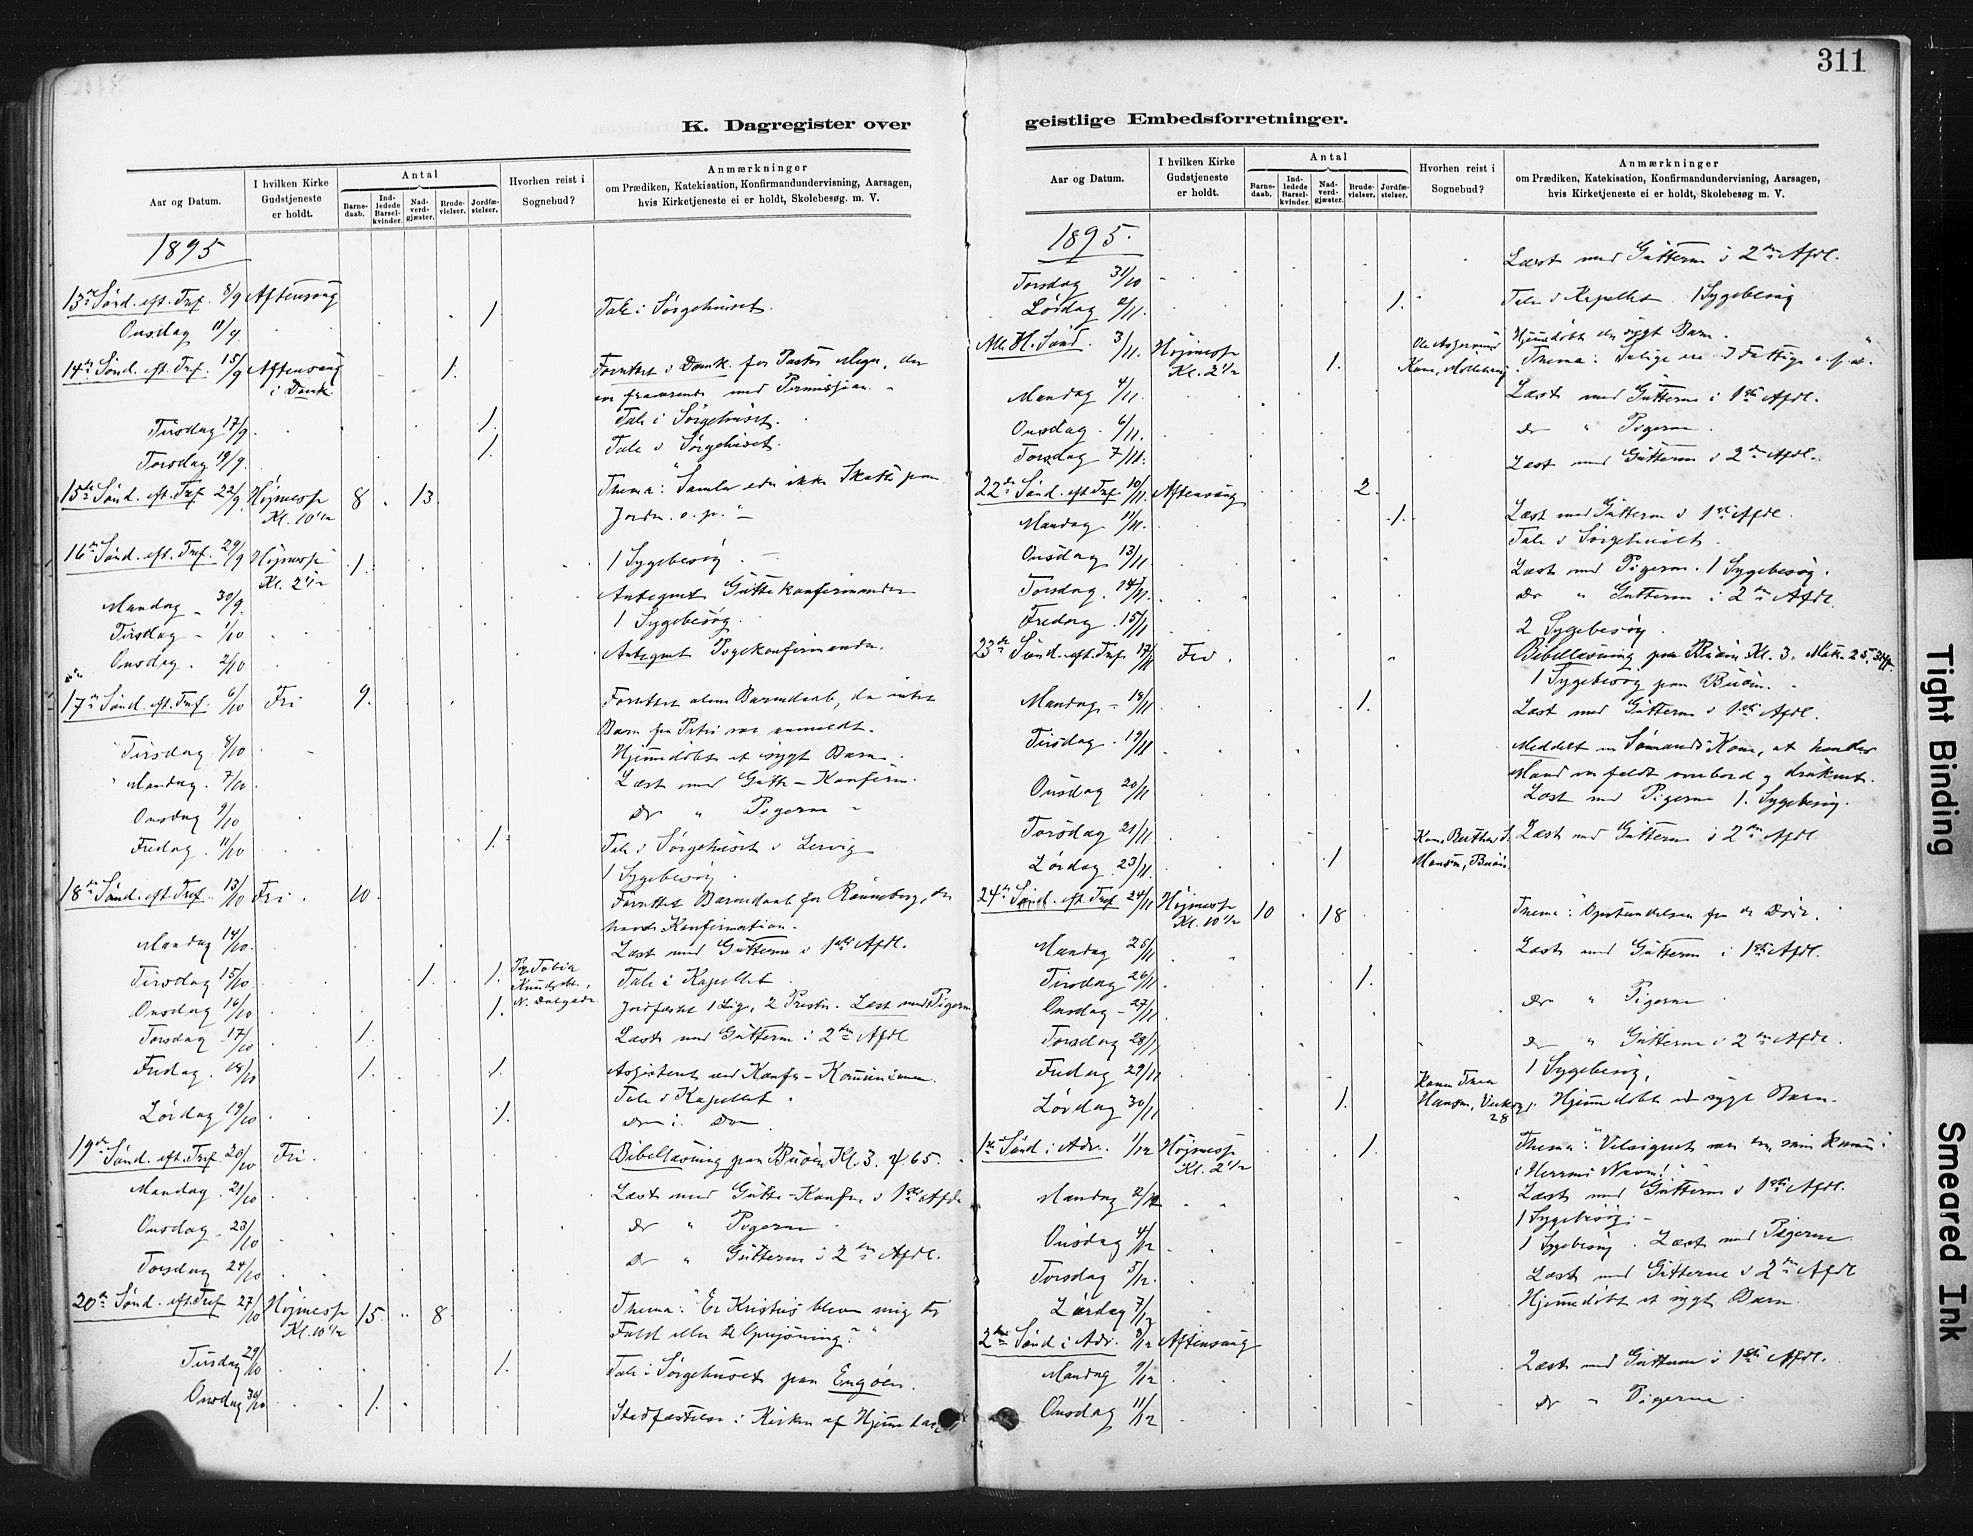 311
K. Dagregister over
geistlige Embedsforretninger.
Aar og Datum.
I hvilken Kirke Gudstjeneste er holdt.
Antal
Barnedaab.
Indledede Barselkvinder.
Nadverdgjæster.
Brudevielser.
Jordfæstelser.
Hvorhen reist i Sognebud?
Anmærkninger
om Prædiken, Katekisation, Konfirmandundervisning, Aarsagen,
hvis Kirketjeneste ei er holdt, Skolebesøg. m. V.
1895
13de Sönd. eft. Tref. 8/9 Aftensang
Onsdag 11/9 1 Tale i Sörgehuset.
14de Sönd. eft. Tref. 15/9 Aftensang 1. Forrettet i Domk. for Pastor Meyer, der
i Domk. var fraværende med Permission.
Tirsdag 17/9 1. Tale i Sörgehuset.
Torsdag 19/9 1. Tale i Sörgehuset.
15de Sönd. eft. Tref. 22/9 Höjmesse 8 13 Thema: "Samler eder ikke Skatte paa
Kl. 10 1/2 Jorden o.s.v."
16de Sönd. eft. Tref. 29/9 Höjmesse 1. 1 Sygebesög
Kl. 2 1/2
Mandag 30/9 Antegnet Guttekonfirmander
Tirsdag 1/10 1 Sygebesög.
Onsdag 2/10 Antegnet Pigekonfirmander.
17de Sönd. eft. Tref. 6/10 Fri 9. Forrettet alene Barnedaab, da intet
Barn fra Petri var anmeldt.
Tirsdag 8/10 Hjemmedöbt et sygt Barn.
Mandag 7/10 Læst med Gutte-Konfirm.
Onsdag 9/10 do " Pigerne
Fredag 11/10 1. Tale i Sörgehuset i Lervig
1 Sygebesög.
18de Sönd. eft. Tref. 13/10 Fri. 10. Forrettet Barnedaab for Rönneberg, der
havde Konfirmation.
Mandag 14/10 Læst med Gutterne i 1ste Afdl.
Tirsdag 15/10 1. 1. Tale i Kapellet.
Onsdag 16/10 1. Jordfæstet 1 Lig, 2 Præster. Læst med Pigerne
Torsdag 17/10 1. Læst med Gutterne i 2den Afdl
Fredag 18/10 1. 1. Assistent ved Konfr-Kommunionen.
Lördag 19/10 1. Tale i Kapellet.
do i do
19de Sönd. eft. Tref. 20/10 Fri. Bibellæsning paa Buöen Kl. 3. ψ 65.
Mandag 21/10 Læst med Gutte-Konfr. i 1ste Afdl
Onsdag 23/10 do " Pigerne
Torsdag 24/10 do " Gutterne i 2den Afdl.
20de Sönd. eft. Tref 27/10 Höjmesse 15. 8. Thema: "Er Kristus bleven mig til
Kl. 10 1/2 Fald eller til Oprejsning?"
Tirsdag 29/10 1. Tale i Sörgehuset paa Engöen.
Onsdag 30/10 1. Stadfæstelse i Kirken af Hjemmedaab
Aar og Datum.
I hvilken Kirke Gudstjeneste er holdt.
Antal
Barnedaab.
Indledede Barselkvinder.
Nadverdgjæster.
Brudevielser.
Jordfæstelser.
Hvorhen reist i Sognebud?
Anmærkninger
om Prædiken, Katekisation, Konfirmandundervisning, Aarsagen,
hvis Kirketjeneste ei er holdt, Skolebesøg. m. V.
1895.
Torsdag 31/10 Læst med Gutterne i 2den Afdl.
Lördag 2/11 1. Tale i Kapellet. 1 Sygebesög
Hjemmedöbt der sygt Barn.
Alle H. Sönd. 3/11. Höjmesse 1. Thema: Salige ere I Fattige o.s.v.
Kl. 2 1/2
Mandag 4/11. Læst med Gutterne i 1ste Afdl.
Onsdag 6/11. do " Pigerne.
Torsdag 7/11. Læst med Gutterne i 2den Afdl.
22de Sönd. eft. Tref 10/11. Aftensang 2.
Mandag 11/11. 1. Læst med Gutterne i 1ste Afdl.
Tale i Sörgehuset.
Onsdag 13/11 Læst med Pigerne. 1 Sygebesög.
Torsdag 14/11. do " Gutterne i 2den Afdl.
Fredag 15/11 2 Sygebesög.
23de Sönd. eft. Tref. 17/11 Fri. Bibellæsning paa Buöen Kl. 3.
1 Sygebesög paa Buöen.
Mandag 18/11 1. Læst med Gutterne i 1ste Afdl.
Tirsdag 19/11 Meddelt en Sömands Kone, at hendes
Mand var faldt overbord og druknet.
Onsdag 20/11 Læst med Pigerne 1. Sygebesög.
Torsdag 21/11 Læst med Gutterne i 2den Afdl.
Lördag 23/11. 1 Kone Bertha S. Hansen, Buöen
24de Sönd. eft. Tref 24/11 Höjmesse 10 18 Thema: "Opstandelsen fra de Döde."
Kl. 10 1/2
Mandag 25/11 Læst med Gutterne i 1ste Afdl.
Tirsdag 26/11 1.
Onsdag 27/11 do " Pigerne
Torsdag 28/11 do " Gutterne i 2den Afdl.
Fredag 29/11 1 Sygebesög,
Lördag 30/11 1. Hjemmedöbt et sygt Barn.
1ste Sönd. i Adv. 1/12 Höjmesse 1. Thema: "Velsignet være den, som kommer
Kl. 2 1/2 i Herrens Navn!"
Mandag 2/12 Læst med Gutterne i 1ste Afdl.
1 Sygebesög.
Onsdag 4/12 1 Sygebesög. Læst med Pigerne.
Torsdag 5/12. Læst med Gutterne i 2den Afdl
Lördag 7/12 Hjemmedöbt et sygt Barn
2den Sönd. i Adv. 8/12 Aftensang
Mandag 9/12 Læst med Gutterne i 1ste Afdl.
Onsdag 11/12 do " Pigerne
Tight Binding
Smeared Ink